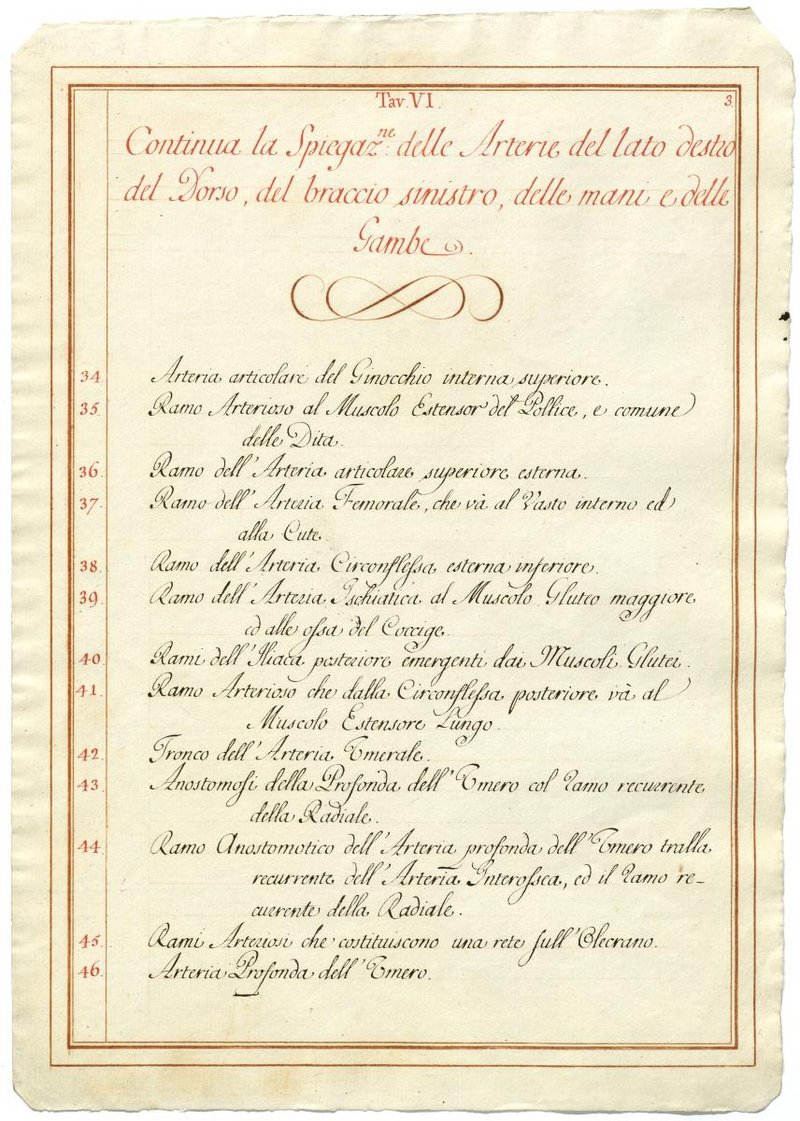 Tav. VI.
3
Continua la Spiegaz.ne delle Arterie del lato destro
del Dorso, del braccio sinistro, delle mani e delle
Gambe.
34. Arteria articolare del Ginocchio interna superiore.
35. Ramo Arterioso al Muscolo Estensor del Pollice, e comune
delle Dita.
36. Ramo dell'Arteria articolare superiore esterna.
37. Ramo dell'Arteria Femorale, che và al Vasto interno ed
alla Cute.
38. Ramo dell'Arteria Circonflessa esterna inferiore.
39. Ramo dell'Arteria Ischiatica al Muscolo Gluteo maggiore
ed alle ossa del Coccige.
40. Rami dell'Iliaca posteriore emergenti dai Muscoli Glutei.
41. Ramo Arterioso che dalla Circonflessa posteriore và al
Muscolo Estensore Lungo.
42. Tronco dell'Arteria Umerale.
43. Anostomosi della Profonda dell'Umero col ramo recurrente
della Radiale.
44. Ramo Anostomotico dell'Arteria profonda dell'Umero tralla
recurrente dell'Arteria Interossea, ed il ramo re-
currente della Radiale.
45. Rami Arteriosi che costituiscono una rete sull'Olecrano.
46. Arteria Profonda dell'Umero.